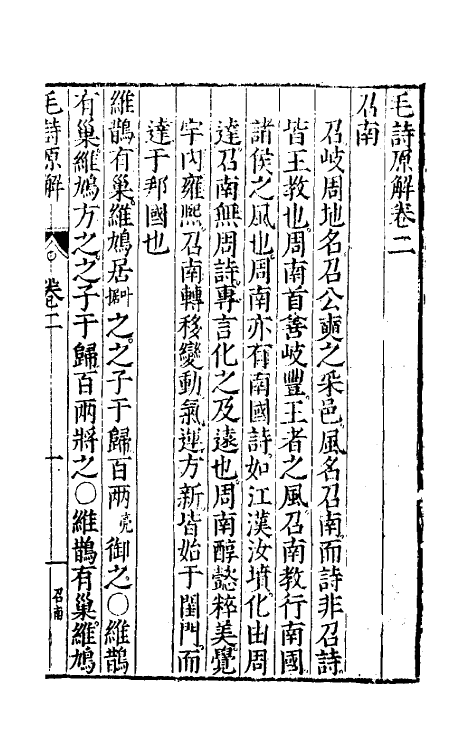 毛詩原解卷二
召南
召岐周地名召公奭之采邑風名召南而詩非召詩
皆王教也周南首善岐豐王者之風召南教行南國
諸侯之風也周南亦有南國詩如江漢汝墳化由周
達召南無周詩專言化之及遠也周南醇懿粹美覺
宇内雍熙召南轉移變動氣運方新皆始于閨門而
達于邦國也
維鵲有巢維鳩居叶據之之子于歸百兩亮御之○維鵲
有巢維鳩方之之子于歸百兩將之○維鵲有巢維鳩
毛詩原解 卷二 一 召南